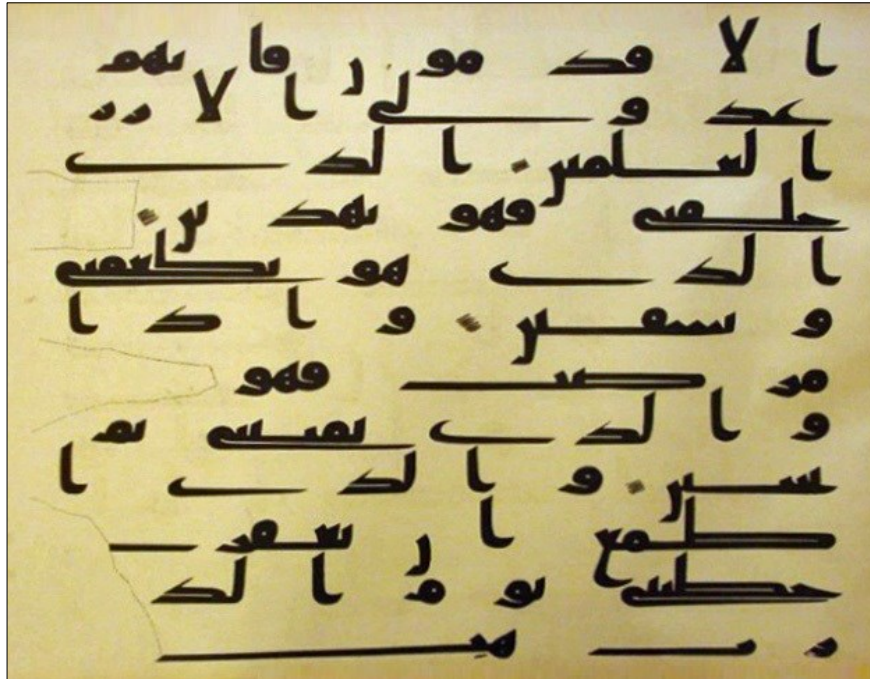 الا قدمون فانهم
عدو لي الا رب
العلمين الذي
خلقني فهو يهدين
الذي هو يطعمني
ويسقين واذا
مرضت فهو
والذي يميتني ثم
يحيين والذي ا
طمع ان يغفر
خطيتي يوم الد
هب